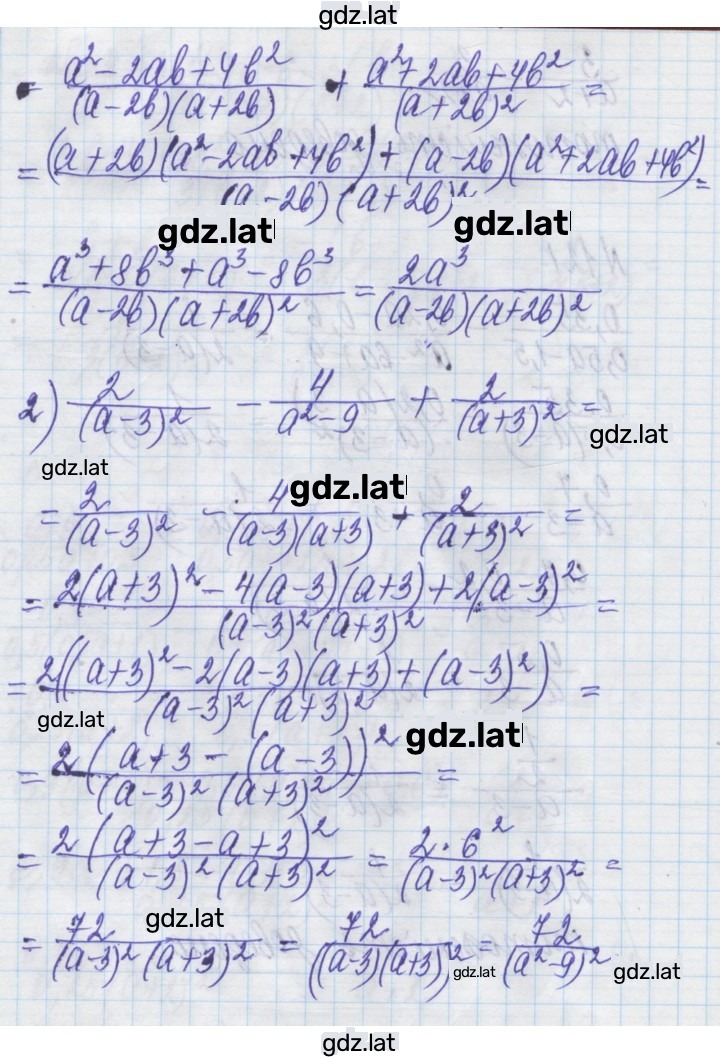 gdz.lat
= (a² - 2ab + 4b²)/((a - 2b)(a + 2b)) + (a² + 2ab + 4b²)/((a + 2b)²) =
= ((a + 2b)(a² - 2ab + 4b²) + (a - 2b)(a² + 2ab + 4b²))/((a - 2b)(a + 2b)²) =
gdz.lat gdz.lat
= (a³ + 8b³ + a³ - 8b³)/((a - 2b)(a + 2b)²) = 2a³/((a - 2b)(a + 2b)²)
2) 2/(a - 3)² - 4/(a² - 9) + 2/(a + 3)² =
gdz.lat
gdz.lat
gdz.lat
= 2/(a - 3)² - 4/((a - 3)(a + 3)) + 2/(a + 3)² =
= (2(a + 3)² - 4(a - 3)(a + 3) + 2(a - 3)²)/((a - 3)²(a + 3)²) =
= 2((a + 3)² - 2(a - 3)(a + 3) + (a - 3)²)/((a - 3)²(a + 3)²) =
gdz.lat
gdz.lat
= 2(a + 3 - (a - 3))²/((a - 3)²(a + 3)²) =
= 2(a + 3 - a + 3)²/((a - 3)²(a + 3)²) = 2 · 6²/((a - 3)²(a + 3)²) =
gdz.lat
= 72/((a - 3)²(a + 3)²) = 72/((a - 3)(a + 3))² = 72/(a² - 9)²
gdz.lat gdz.lat
gdz.lat